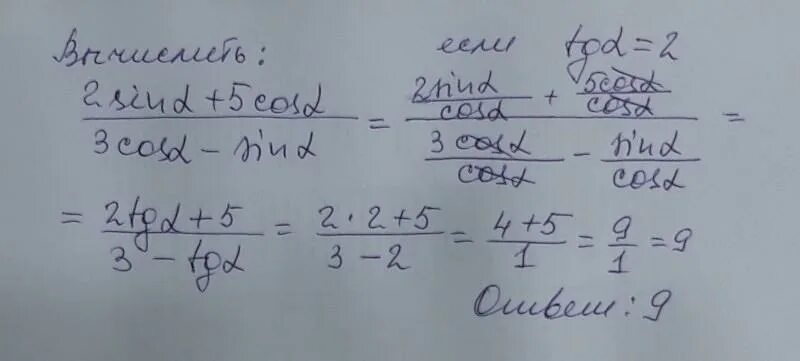 Вычислить: если tgα = 2
(2sinα + 5cosα)/(3cosα − sinα) = (2sinα/cosα + 5cosα/cosα)/(3cosα/cosα − sinα/cosα) =
= (2tgα + 5)/(3 − tgα) = (2·2+5)/(3−2) = (4+5)/1 = 9/1 = 9
Ответ: 9